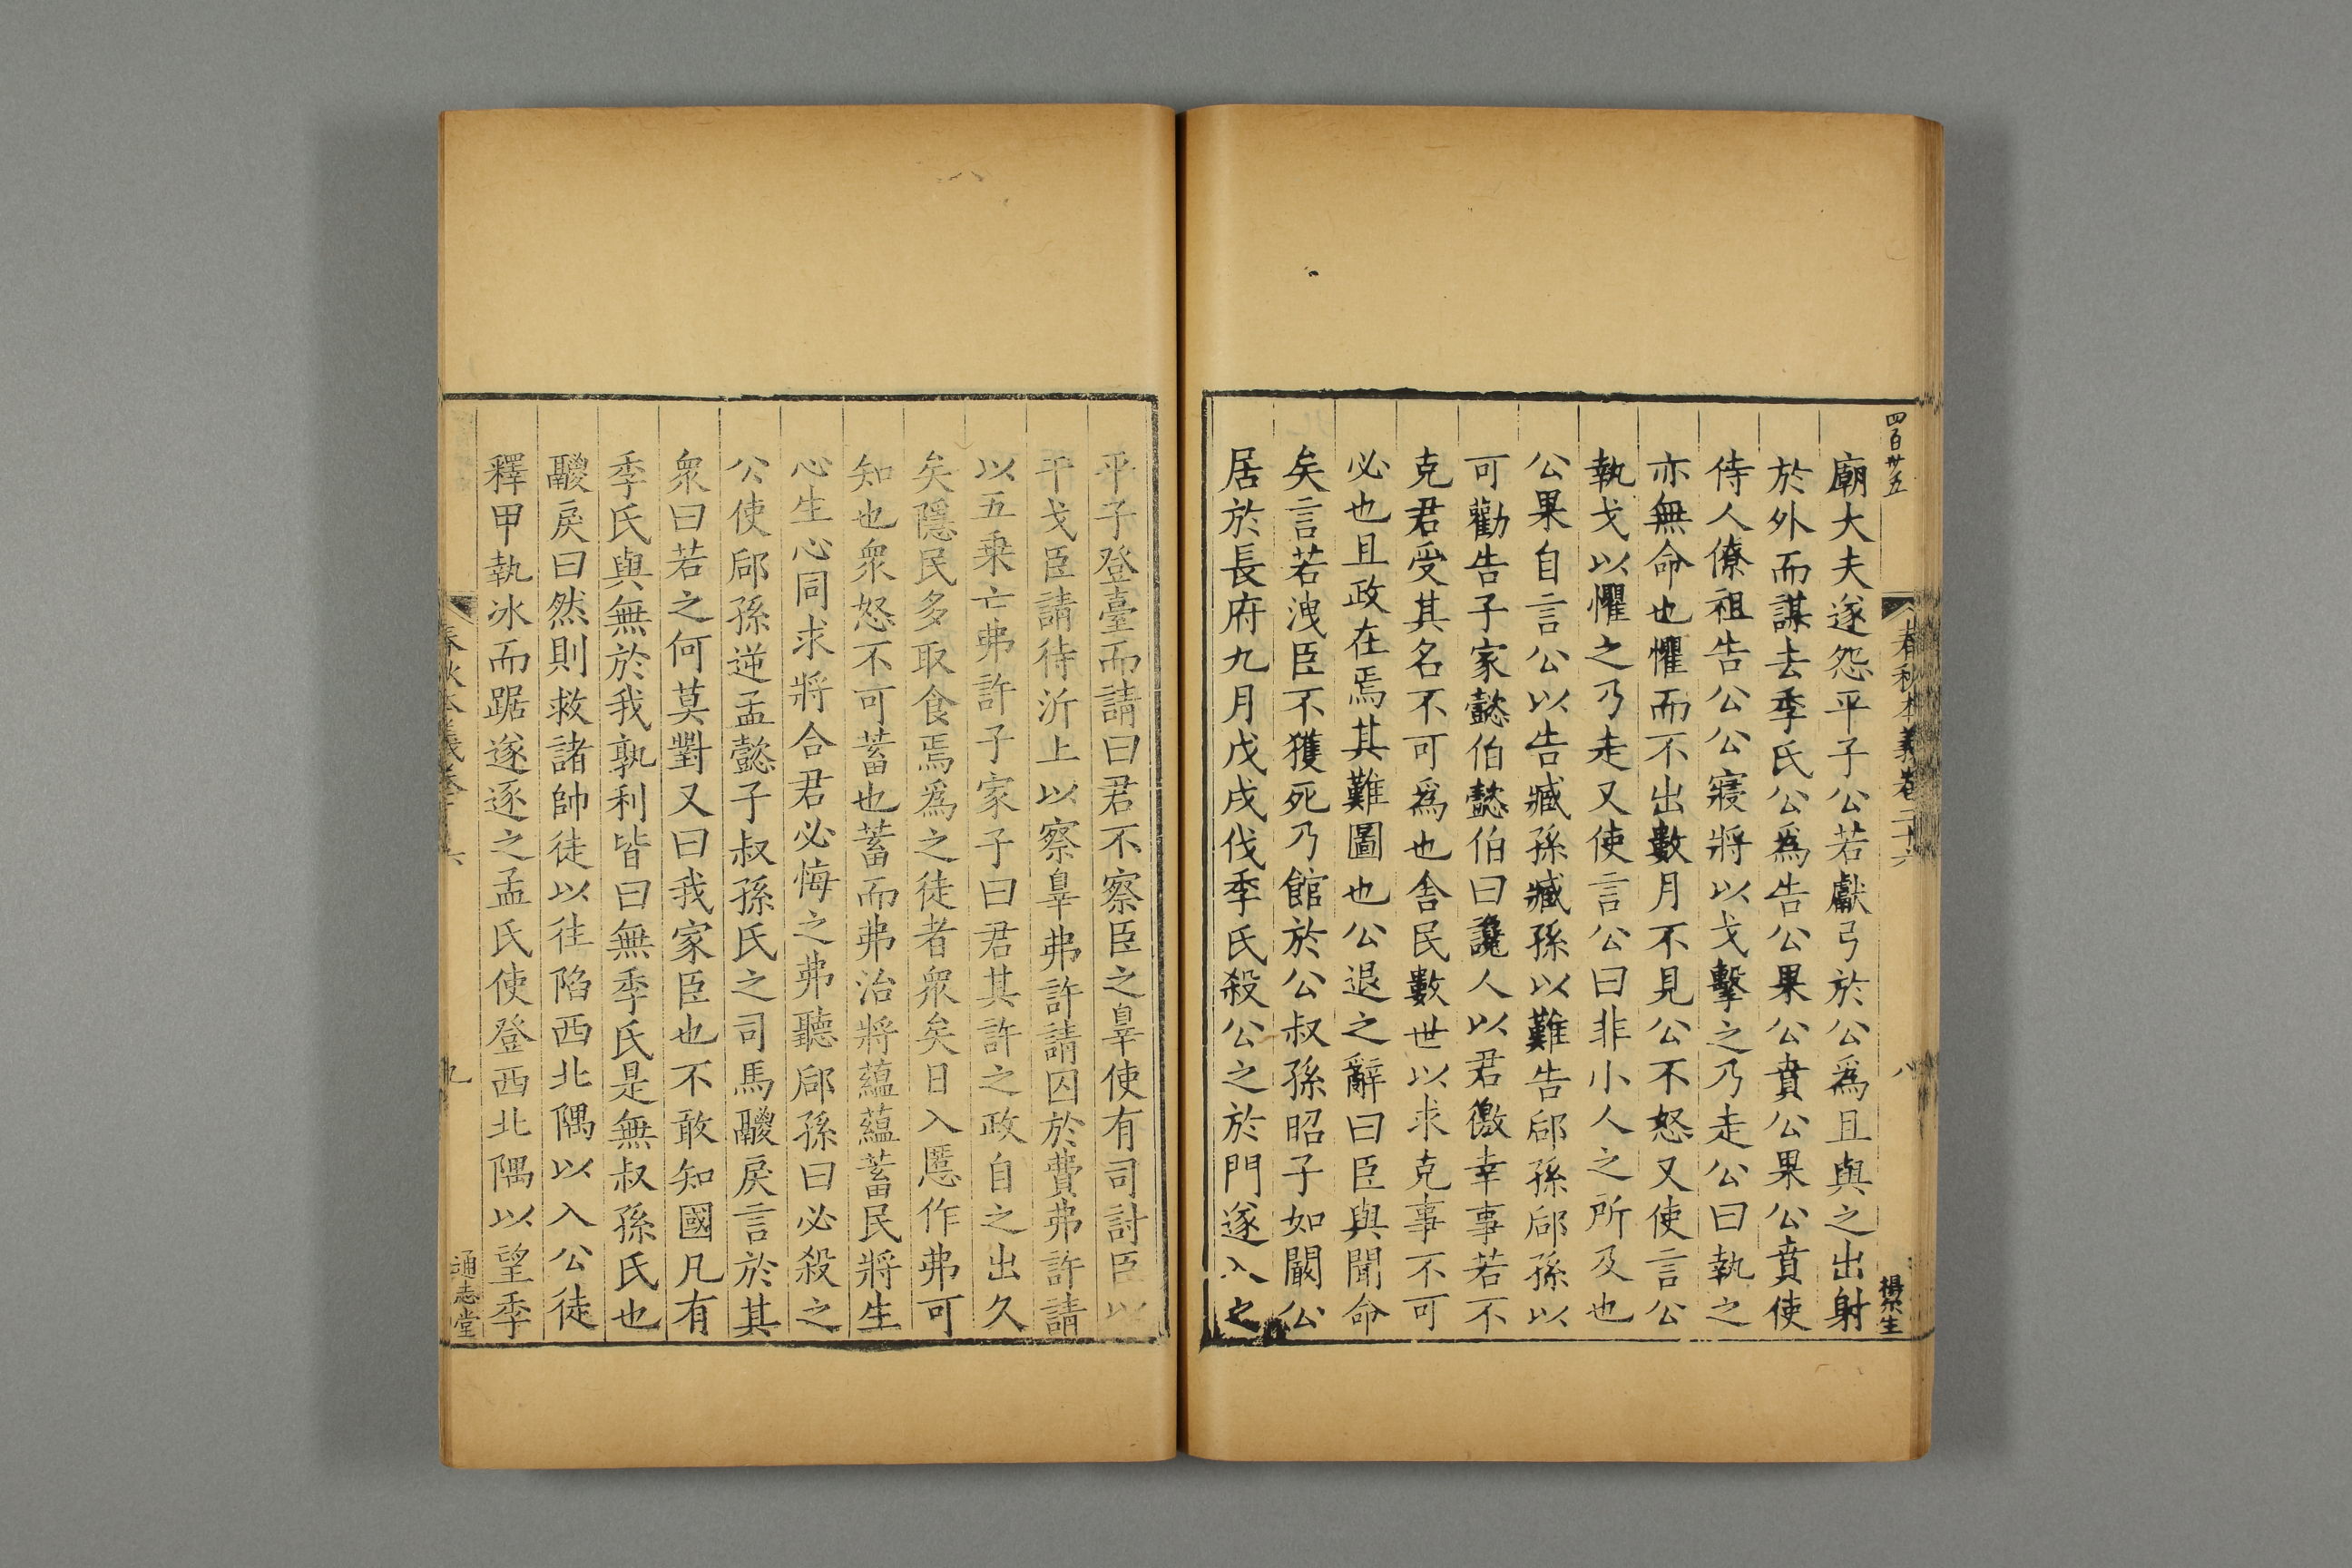 四百卅五
春秋本義卷二十六
八
楊生
廟大夫遂怨平子公若獻弓於公爲且與之出射
於外而謀去季氏公爲告公果公賁公果公賁使
侍人僚祖告公公寢將以戈擊之乃走公曰執之
亦無命也懼而不出數月不見公不怒又使言公
執戈以懼之乃走又使言公曰非小人之所及也
公果自言公以告臧孫臧孫以難告郈孫郈孫以
可勸告子家懿伯懿伯曰讒人以君徼幸事若不
克君受其名不可爲也舍民數世以求克事不可
必也且政在焉其難圖也公退之辭曰臣與聞命
矣言若洩臣不獲死乃館於公叔孫昭子如闞公
居於長府九月戊戌伐季氏殺公之於門遂入之
平子登臺而請曰君不察臣之辠使有司討臣以
干戈臣請待沂上以察辠弗許請囚於費弗許請
以五乗亡弗許子家子曰君其許之政自之出久
矣隱民多取食焉爲之徒者衆矣日入慝作弗可
知也衆怒不可蓄也蓄而弗治將蘊蘊蓄民將生
心生心同求將合君必悔之弗聽郈孫曰必殺之
公使郈孫逆孟懿子叔孫氏之司馬鬷戾言於其
衆曰若之何莫對又曰我家臣也不敢知國凡有
季氏與無於我孰利皆曰無季氏是無叔孫氏也
鬷戾曰然則救諸帥徒以往陷西北隅以入公徒
釋甲執冰而踞遂逐之孟氏使登西北隅以望季
春秋本義卷二十六
九
通志堂